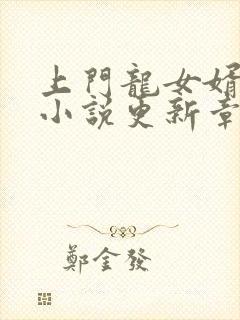 上門龍女婿
小說更新章
鄭金發